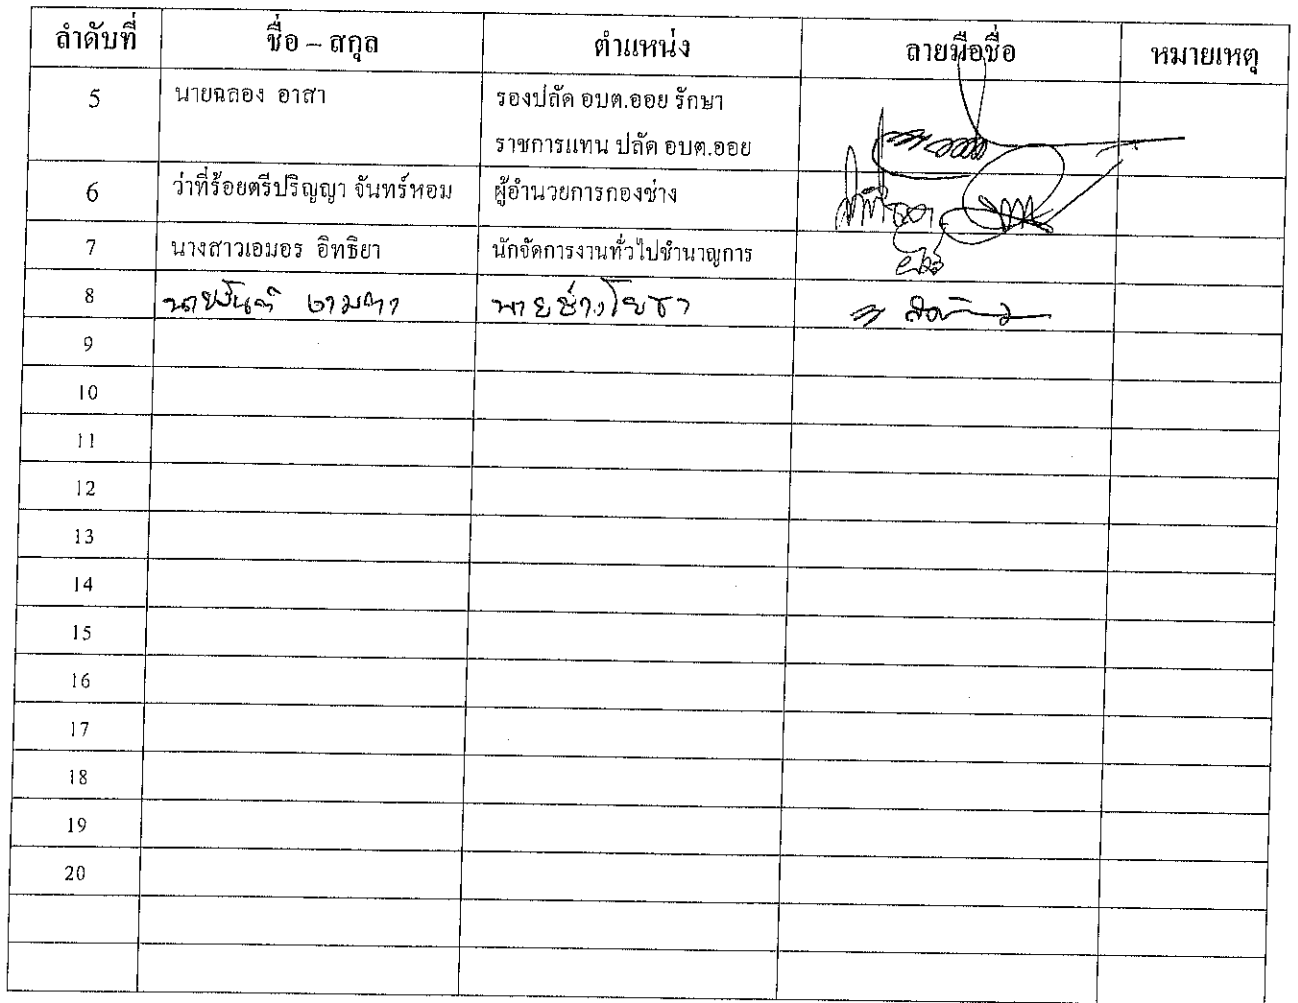 ลำดับที่ ชื่อ – สกุล ตำแหน่ง ลายมือชื่อ หมายเหตุ
5 นายฉลอง อาสา รองปลัด อบต.ออย รักษา
ราชการแทน ปลัด อบต.ออย
6 ว่าที่ร้อยตรีปริญญา จันทร์หอม ผู้อำนวยการกองช่าง
7 นางสาวเอมอร อิทธิยา นักจัดการงานทั่วไปชำนาญการ
8 นายช่างโยธา
9
10
11
12
13
14
15
16
17
18
19
20